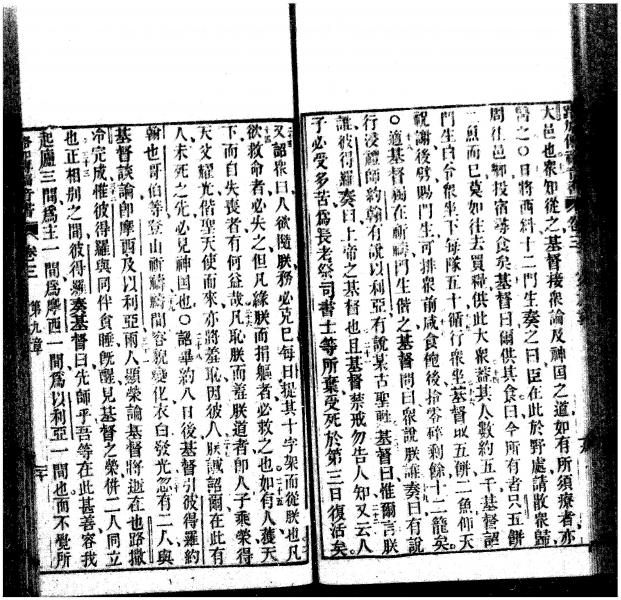 大邑也衆知從之基督接衆論及神国之道如有所須療者亦
醫之〇日將西斜十二門生奏之曰臣在此於野處請散衆歸
周徃邑鄉投宿尋食矣基督曰爾供其食曰今所有者只五餅
二魚而已莫如往去買糧供此大衆蓋其人數約五千基督詔
門生曰令衆坐下每隊五十循行衆坐基督取五餅二魚仰天
祝謝後劈賜門生可排衆前咸食飽後拾零碎剩餘十二籠矣
〇適基督獨在祈禱門生偕之基督問曰衆說朕誰奏曰有說
行浸禮師約翰有說以利亞有說某古聖甦基督曰惟爾言朕
誰彼得羅奏曰上帝之基督也且基督禁戒勿告人知又云人
子必受多苦爲長老祭司書士等所棄受死於第三日復活矣
又詔衆曰人欲隨朕務必克已每日提其十字架而從朕也凡
欲救命者必失之但凡緣朕而捐軀者必救之也如有人獲天
下而自失喪者有何益哉凡恥朕而羞朕道者卽人子乘榮得
天父耀光偕聖天使而來亦將羞恥因彼人朕誠詔爾在此有
人未死之先必見神国也〇詔畢約八日後基督引彼得羅約
翰也哥伯等登山祈禱禱間容貌變化衣白發光忽有二人與
基督談論卽摩西及以利亞兩人顯榮論基督將逝在也路撒
冷完成惟彼得羅與同伴貪睡旣醒見基督之榮併二人同立
也正相别之間彼得羅奏基督曰先師乎吾等在此甚善容我
起廬三間爲主一間爲摩西一間爲以利亞一間也而不覺所
卷三 第九章